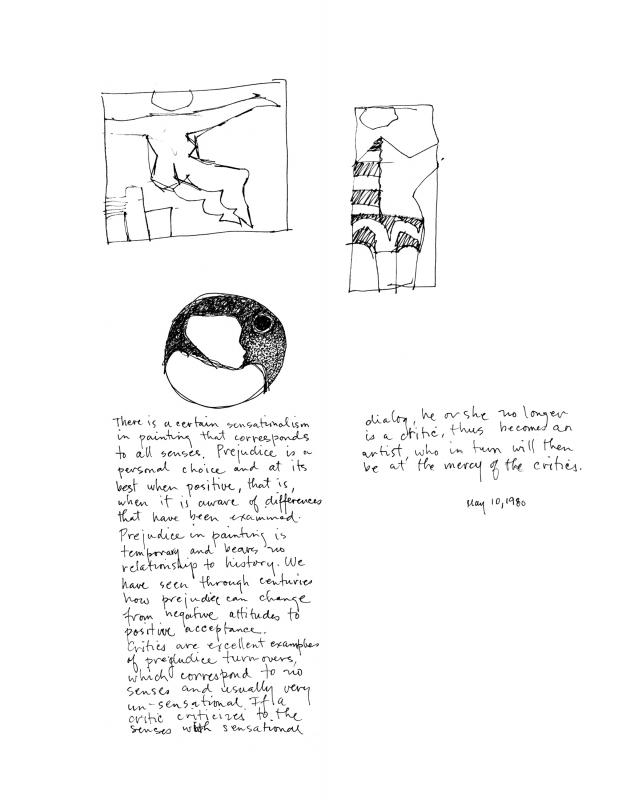 There is a certain sensationalism
in painting that corresponds
to all senses. Prejudice is a
personal choice and at its
best when positive, that is,
when it is aware of differences
that have been examined.
Prejudice in painting is
temporary and bears no
relationship to history. We
have seen through centuries
how prejudice can change
from negative attitudes to
positive acceptance.
Critics are excellent examples
of prejudice turnovers,
which correspond to no
senses and usually very
un-sensational. If a
critic criticizes to the
senses with sensational
dialog, he or she no longer
is a critic, thus becomes an
artist, who in turn will then
be at the mercy of the critics.
May 10, 1980